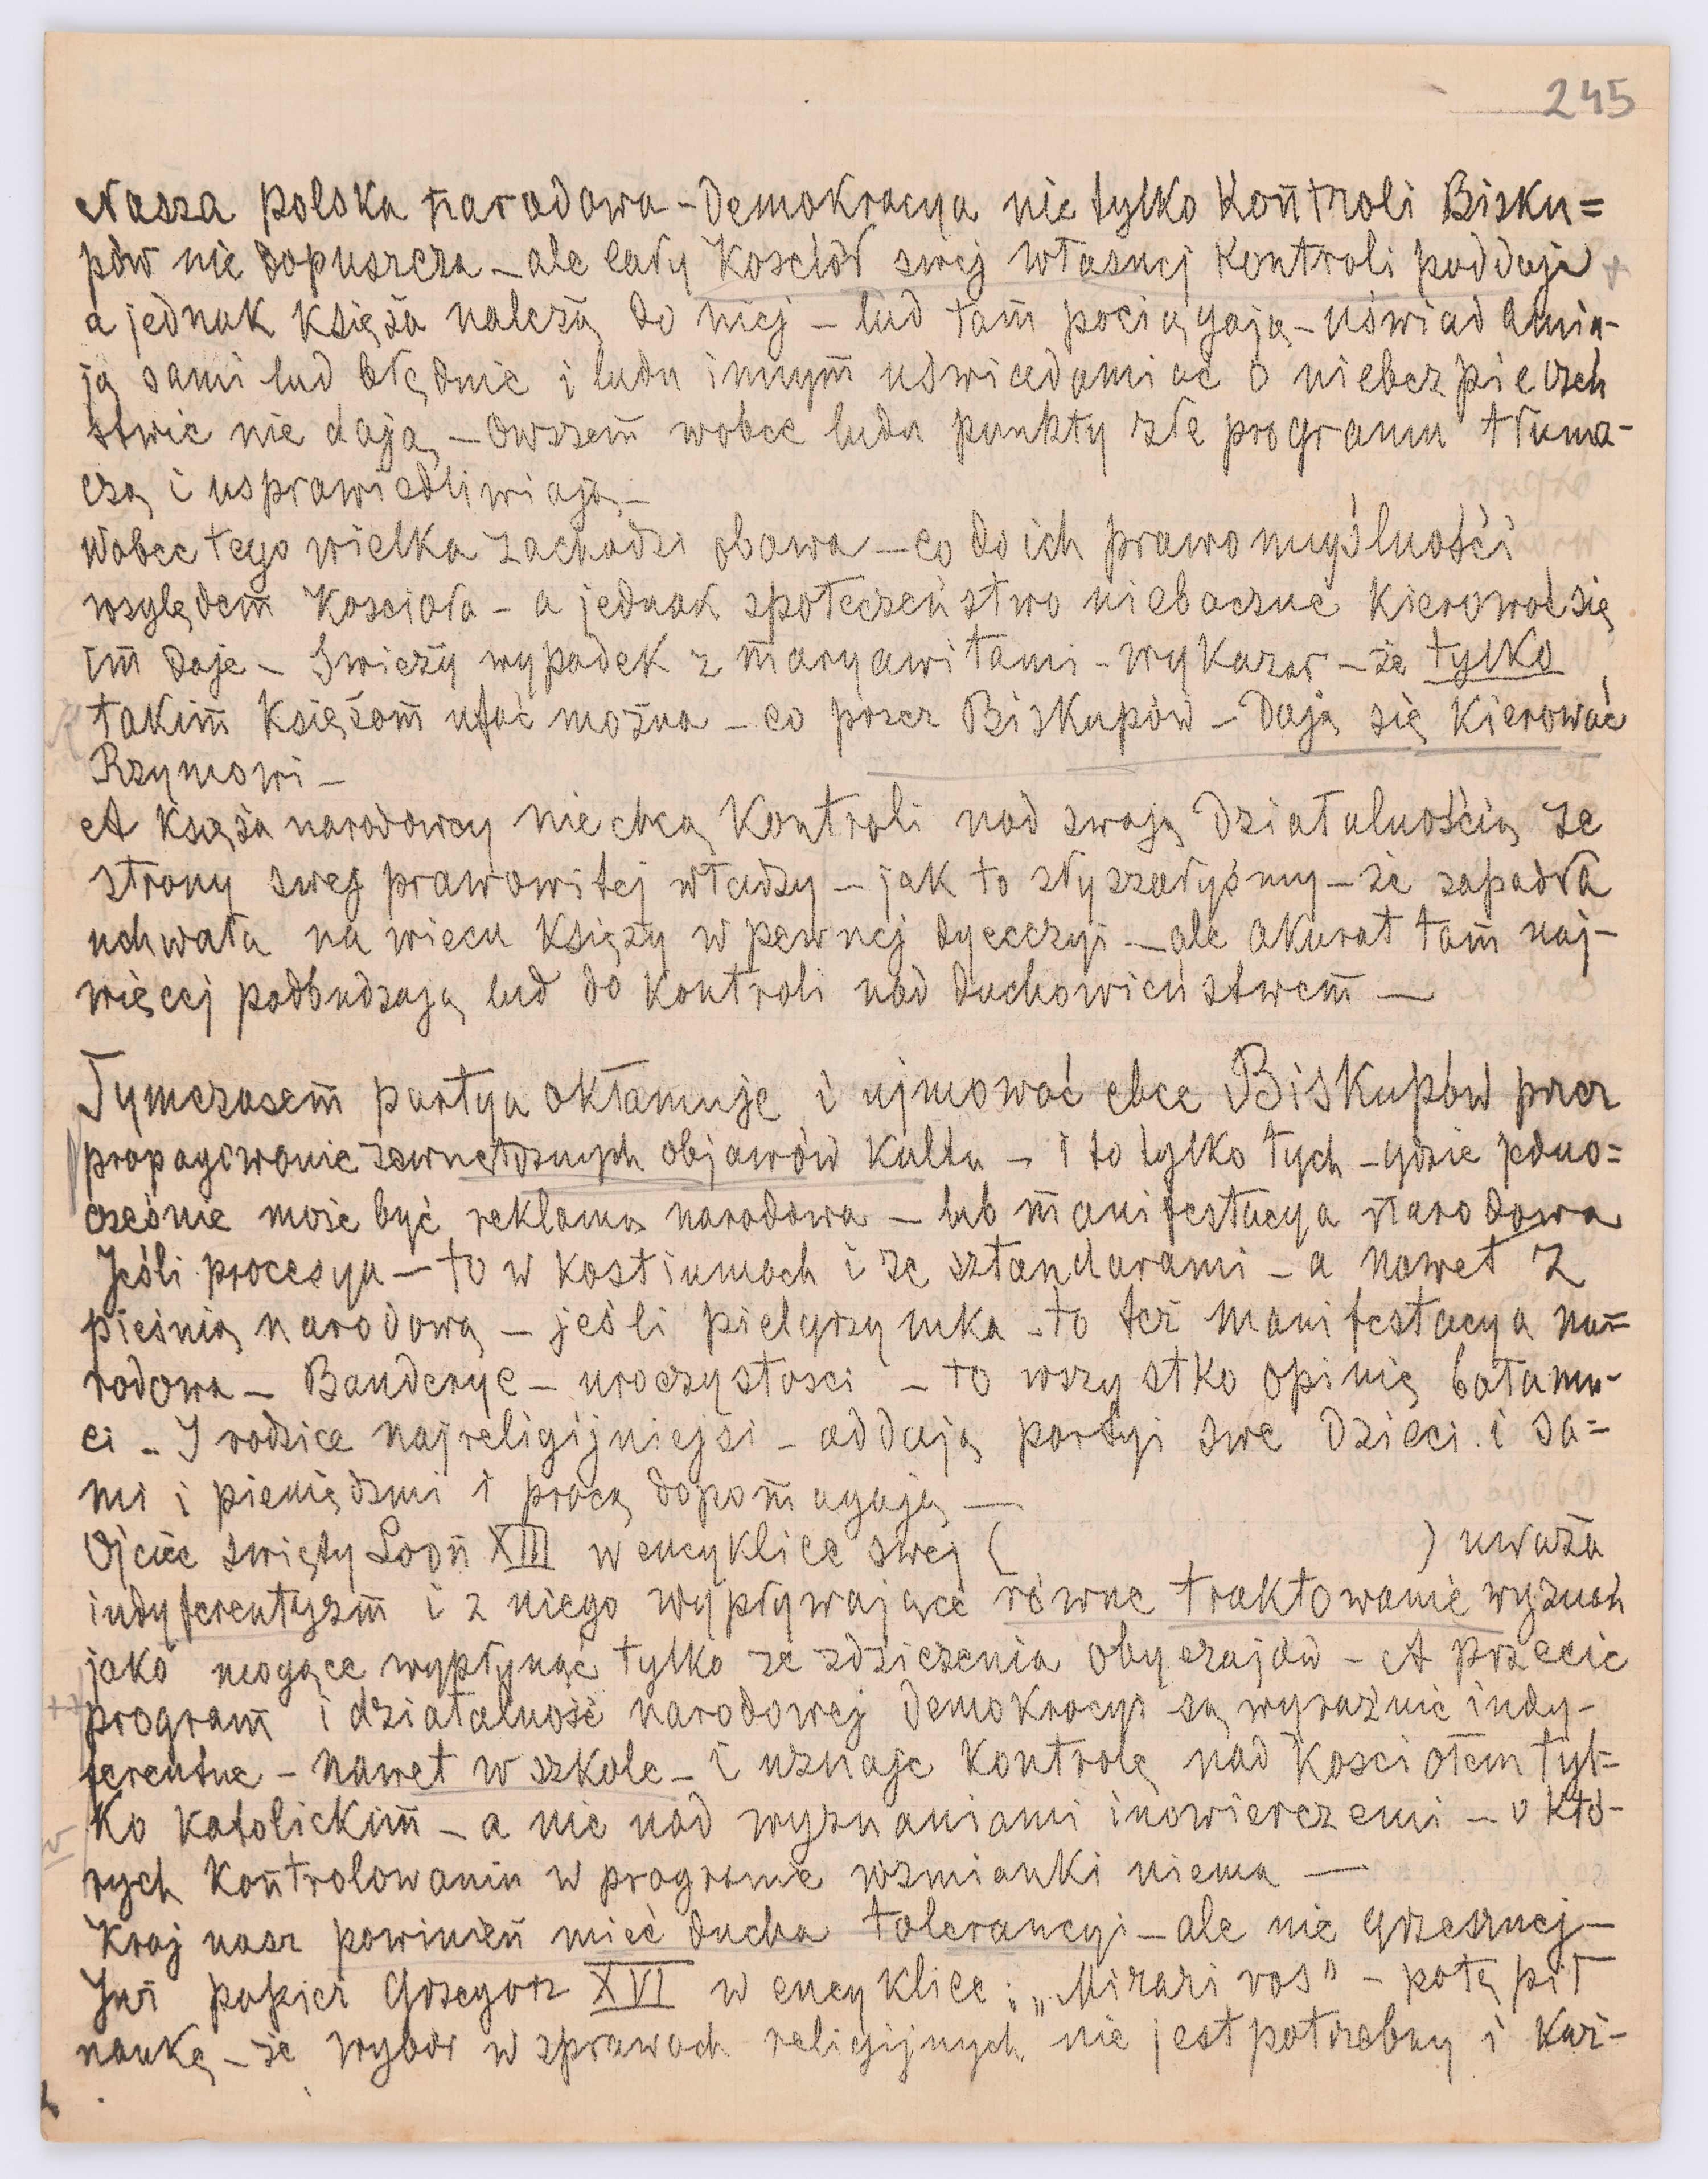 245
Nasza polska narodowa-Demokracya nie tylko kontroli Bisku=
pów nie dopuszcza – ale cały Kosciół swej własnej kontroli poddaje +
a jednak księża należą do niej – lud tam pociągają – uświadamia-
ją sami lud błędnie i ludu innym uświadamiać o niebezpieczeń
stwie nie dają – Owszem wobec ludu punkty złe programu tłuma-
czą i usprawiedliwiają –
Wobec tego wielka zachodzi obawa – co do ich prawomyślności
względem Kościoła – a jednak społeczeństwo niebaczne kierować się
im daje – Swieży wypadek z maryawitami – wykazał – że tylko
takim księżom ufać można – co przez Biskupów – dają się kierować
Rzymowi –
A księża narodowcy nie chcą kontroli nad swoją działalnością ze
strony swej prawowitej władzy – jak to słyszałyśmy – że zapadła
uchwała na wiecu księży w pewnej dyecezyi – ale akurat tam naj-
więcej podbudzają lud do kontroli nad duchowieństwem –
Tymczasem partya okłamuje i ujmować chce Biskupów przez
propagowanie zewnętrznych objawów kultu – i to tylko tych – gdzie jedno=
cześnie może być reklama narodowa – lub manifestacya narodowa
Jeśli procesya – to w kostiumach i ze sztandarami – a nawet z
pieśnią narodową – jeśli pielgrzymka – to też manifestacya na=
rodowa – Banderye – uroczystosci – to wszystko opinię bałamu-
ci – I rodzice najreligijniejsi – oddają partyi swe dzieci i sa=
mi i pieniędzmi i pracą dopomagają –
Ojciec święty Leon XIII w encyklice swej ( ) uważa
indyferentyzm i z niego wypływające równe traktowanie wyznań
jako mogące wypłynąć tylko ze zdziczenia obyczajów – A przecie
++ program i działalność narodowej demokracyi są wyraźnie indy-
ferentne – nawet w szkole – i uznaje kontrolę nad Kosciołem tyl=
ko katolickim – a nie nad wyznaniami inowierczemi – o któ-
rych kontrolowaniu w programie wzmianki niema –
Kraj nasz powinien mieć ducha tolerancyi – ale nie grzesznej –
Już papież Grzegorz XVI w encyklice: „Mirari vos" – potępił
naukę – że wybór w sprawach religijnych nie jest potrzebny i każ-